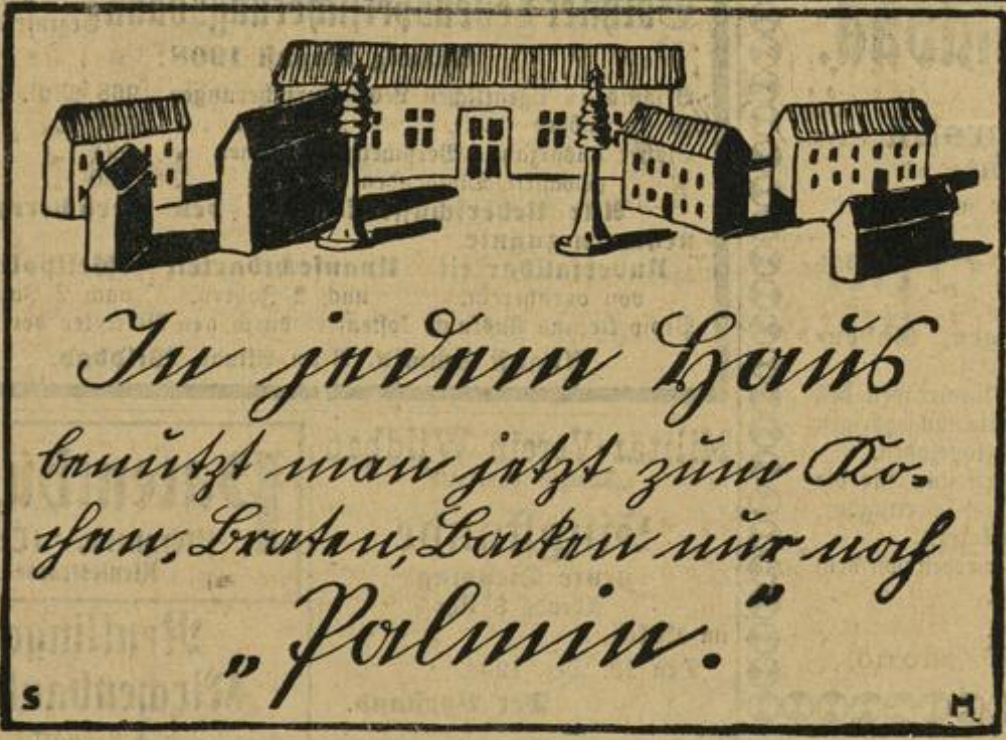 In jedem Haus
benützt man jetzt zum Ko=
chen, Braten, Backen nur noch
„Palmin“.
S M